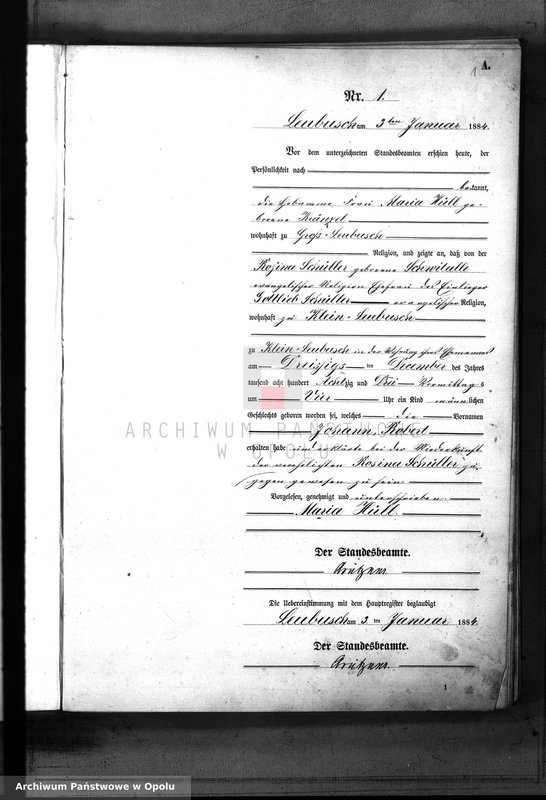 A.
1
Nr. 1.
Leubusch am 3ten Januar 1884.
Vor dem unterzeichneten Standesbeamten erschien heute, der
Persönlichkeit nach
bekannt,
die Hebamme Frau Maria Hüll ge-
borene
wohnhaft zu Groß-Leubusch
Religion, und zeigte an, daß von der
Rosina Schüller geborene Schwitalle
evangelischer Religion Ehefrau des Einlieger
Gottlieb Schüller evangelischer Religion,
wohnhaft zu Klein-Leubusch
zu Klein-Leubusch in der Wohnung ihres Ehemannes
am Dreizigsten December des Jahres
tausend acht hundert Achtzig und Drei Vormittags
um Vier Uhr ein Kind männlichen
Geschlechts geboren worden sei, welches die Vornamen
Johann, Robert
erhalten habe und erklärte bei der Niederkunft
der verehelichten Rosina Schüller zu-
gegen gewesen zu sein.
Vorgelesen, genehmigt und unterschrieben.
Maria Hüll.
Der Standesbeamte.
Die Uebereinstimmung mit dem Hauptregister beglaubigt
Leubusch am 3ten Januar 1884.
Der Standesbeamte.
1
ARCHIWUM PAŃSTWOWE
W OPOLU
Archiwum Państwowe w Opolu